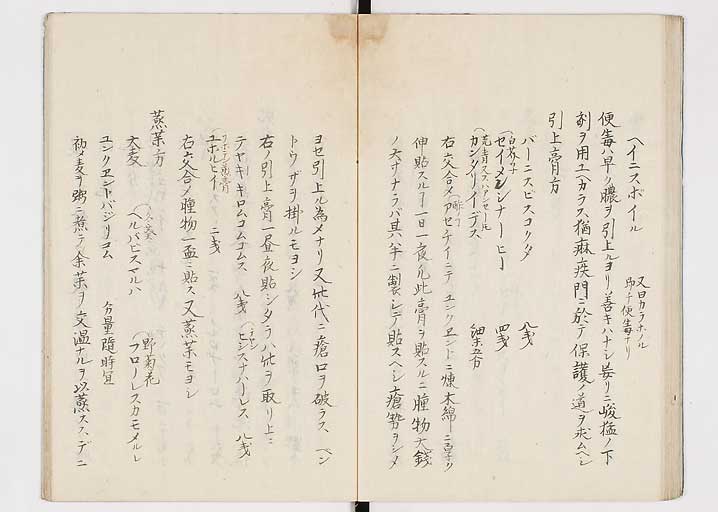 ヘイニスボイル
又曰カラホノル
即チ便毒ナリ
便毒ハ早ク膿ヲ引上ルヨリ善キハナシ妄リニ峻猛ノ下
剤ヲ用ユヘカラス猶痳疾門ニ於テ保護ノ道ヲ求ムヘシ
引上膏方
バーニスビスコックタ 八戔
(白芥子
(セイメンシナーヒー 四戔
(芫青
カンタリイデス 細末五分
右交合メアセテイニテユンクエントニ煉木綿ニ
伸貼スルヿ一日一夜凡此膏ヲ貼スルニ腫物大銭
ノ大サナラバ其八半ニ製シテ貼スヘシ瘡勢ヲシメ
ヨセ引上ル為メナリ又此代ニ瘡口ヲ破ラス ヘン
トウザヲ掛ルモヨシ
右ノ引上膏一昼夜貼シタラハ此ヲ取リ上ニ
テヤキーキロムコムコムス 八戔
ヒシスナハーレス 八戔
ユホルヒイ 二戔
右交合メ腫物一盃ニ貼ス又蒸薬モヨシ
蒸薬方
大麦
ヘルバビスマルハ
(野菊花
フローレスカモメルレ
ユンクエントバジリコム 分量随時宜
初メ麦ヲ粥ニ煮テ余薬ヲ交温ナルヲ以蒸スヘシデニ